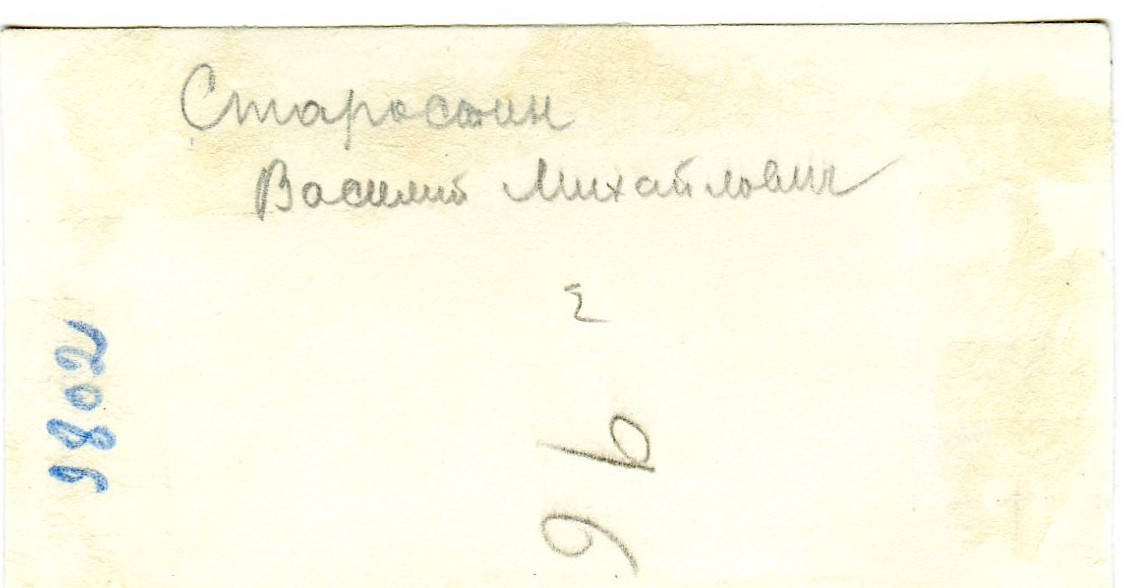 Старостин
Василий Михайлович
9802